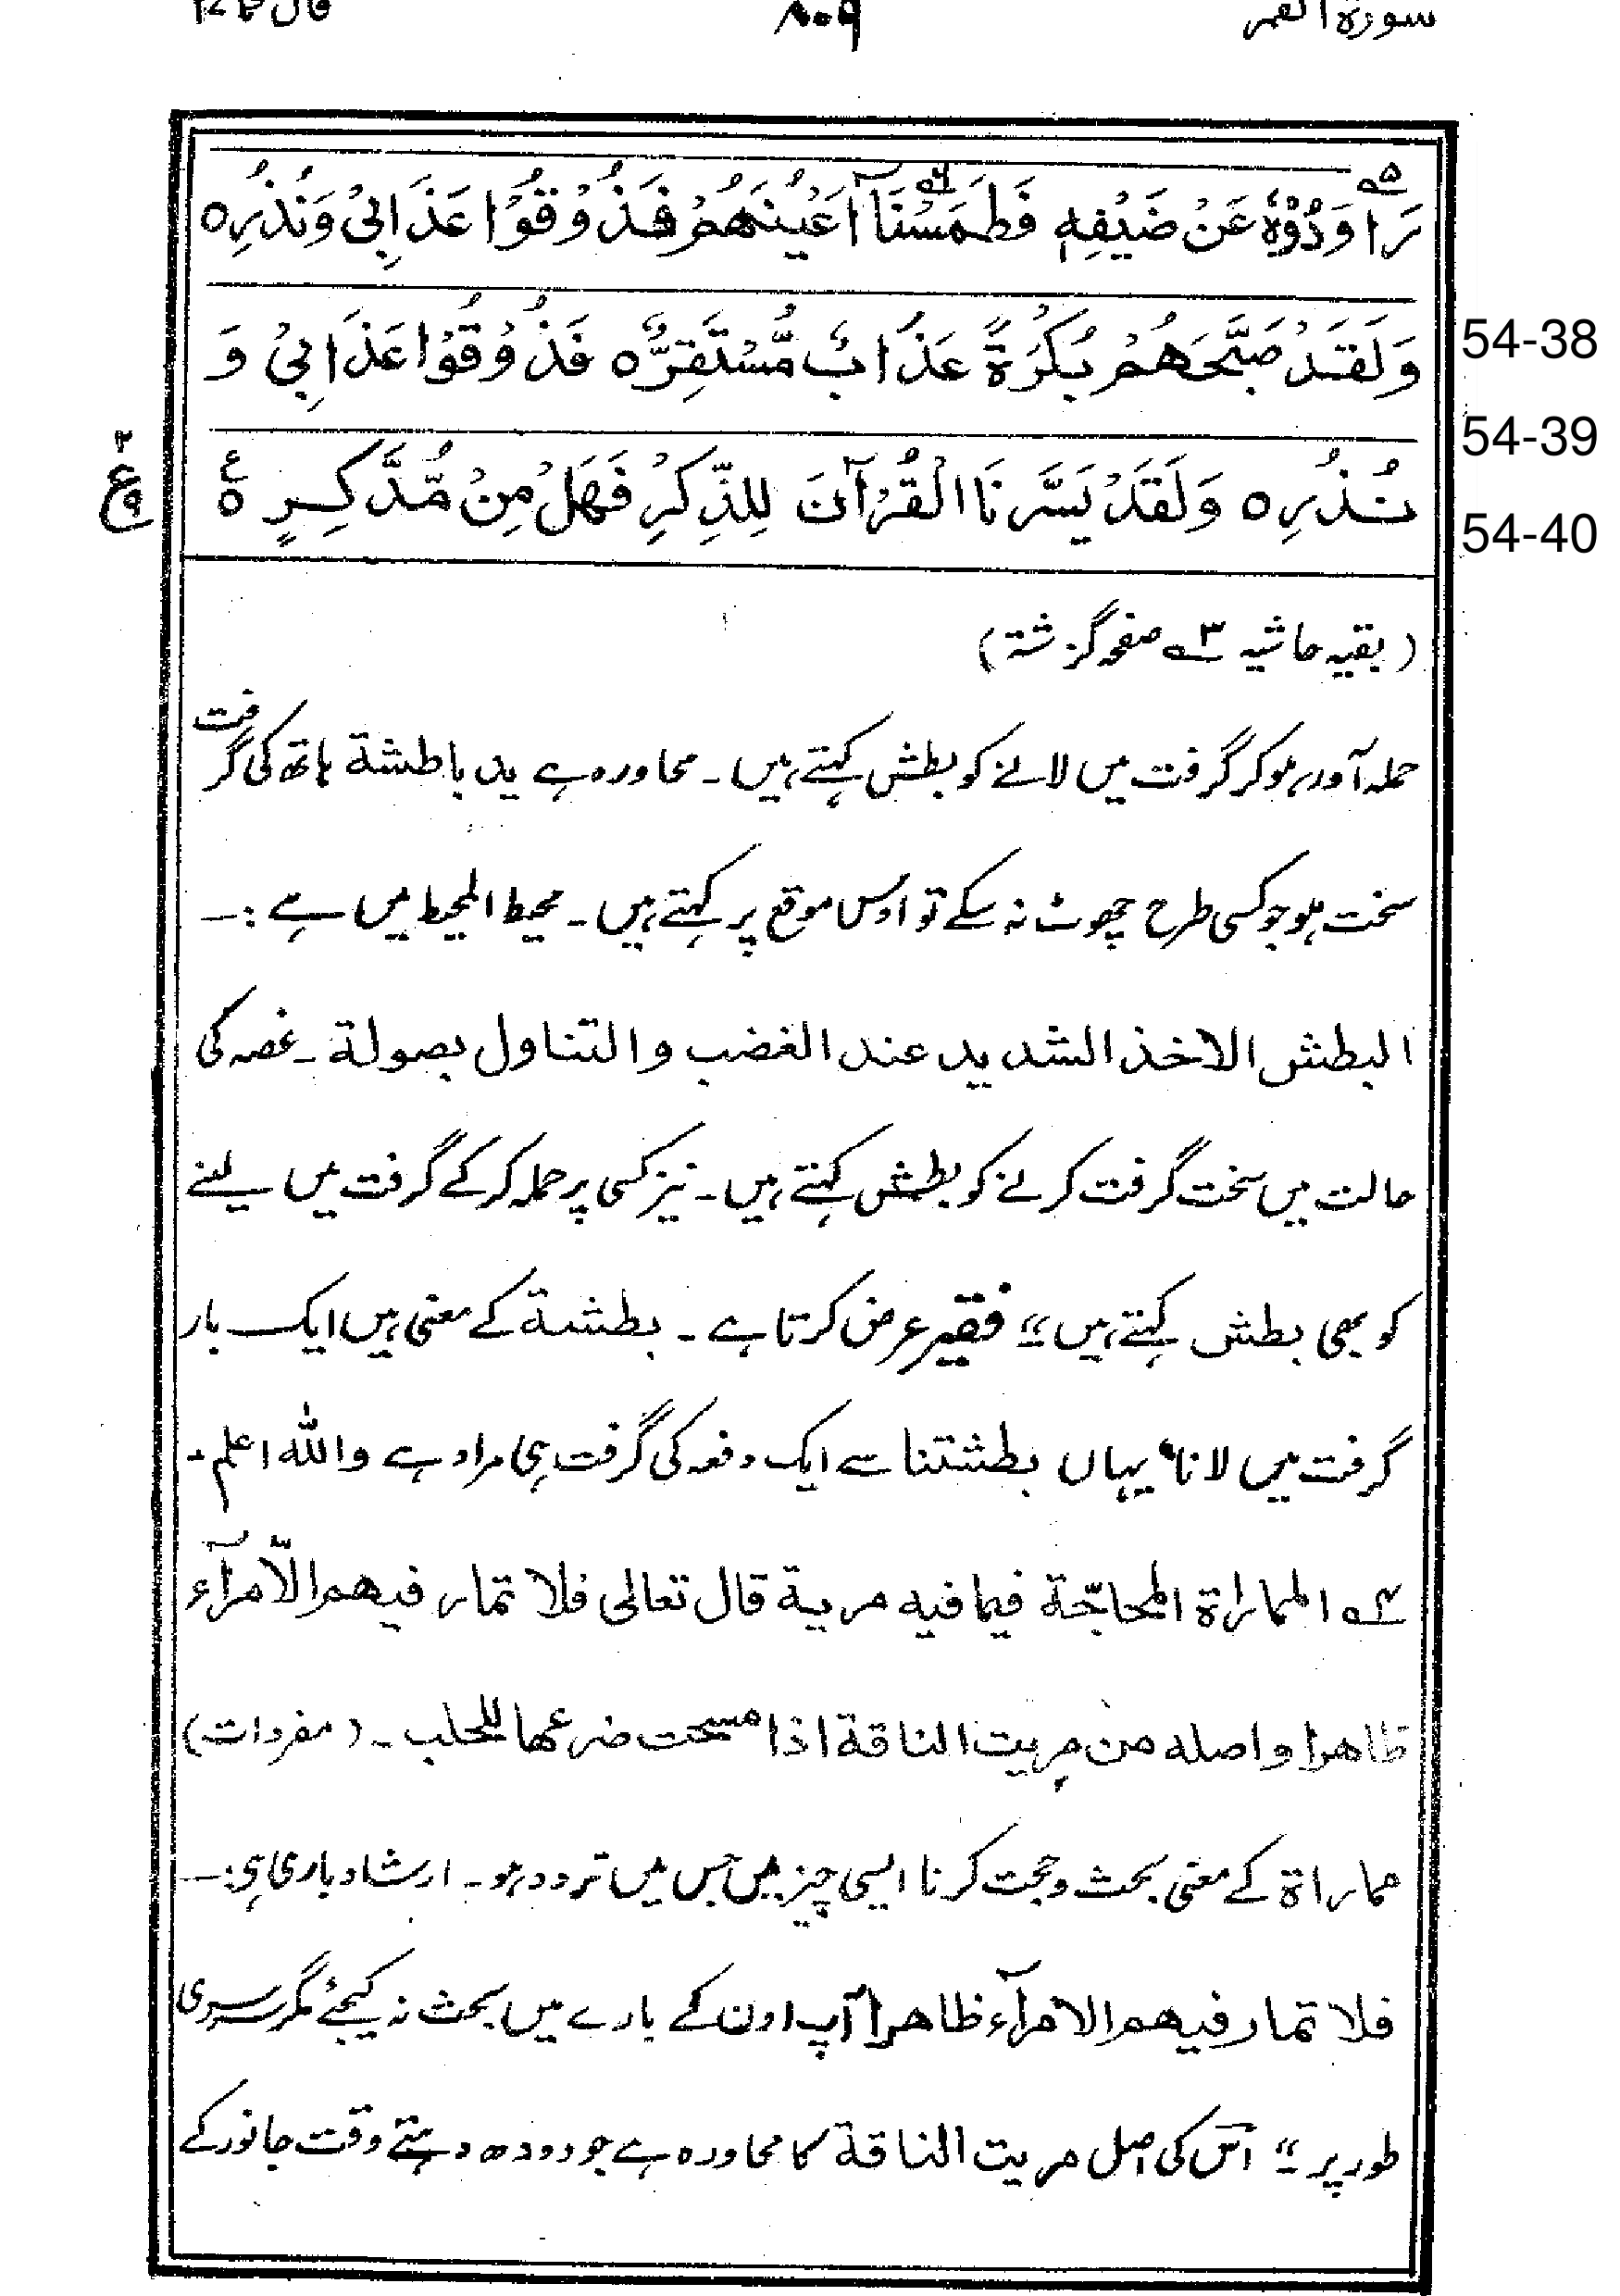 سورة القمر ۸۰۹ قال فما ۲۷
رَاوَدُوْهُ عَنْ ضَيْفِهٖ فَطَمَسْنَآ اَعْيُنَهُمْ فَذُوْقُوْا عَذَابِىْ وَنُذُرِ ه
وَلَقَدْ صَبَّحَهُمْ بُكْرَةً عَذَابٌ مُّسْتَقِرٌّ ه فَذُوْقُوْا عَذَابِىْ وَ
54-38
54-39
نُذُرِ ه وَلَقَدْ يَسَّرْنَا الْقُرْآنَ لِلذِّكْرِ فَهَلْ مِنْ مُّدَّكِرٍ ه ع
54-40
(بقیہ حاشیہ ۳ صفحہ گزشتہ)
حملہ آور ہو کر گرفت میں لانے کو بطش کہتے ہیں۔ محاورہ ہے ید باطشة ہاتھ کی گرفت
سخت ہو جو کسی طرح چھوٹ نہ سکے تو اوس موقع پر کہتے ہیں۔ محیط المحیط میں ہے :۔
البطش الاخذ الشدید عند الغضب و التناول بصولة۔ غصہ کی
حالت میں سخت گرفت کرنے کو بطش کہتے ہیں۔ نیز کسی پر حملہ کر کے گرفت میں لینے
کو بھی بطش کہتے ہیں" فقیر عرض کرتا ہے۔ بطشة کے معنی ہیں ایک بار
گرفت میں لانا، یہاں بطشتنا سے ایک دفعہ کی گرفت ہی مراد ہے واللہ اعلم۔
۴ المماراة المحاجّة فیما فیه مریة قال تعالی فلا تمار فیهم الّا مرآء
ظاهرا واصله من مریت الناقة اذا مسحت ضرعها للحلب۔ (مفردات)
مماراة کے معنی بحث و حجت کرنا ایسی چیز میں جس میں تردد ہو۔ ارشاد باری ہی:۔
فلا تمار فیهم الا مرآء ظاهرا آپ اون کے بارے میں بحث نہ کیجئے مگر سرسری
طور پر" اس کی اصل مریت الناقة کا محاورہ ہے جو دودھ دہتے وقت جانور کے